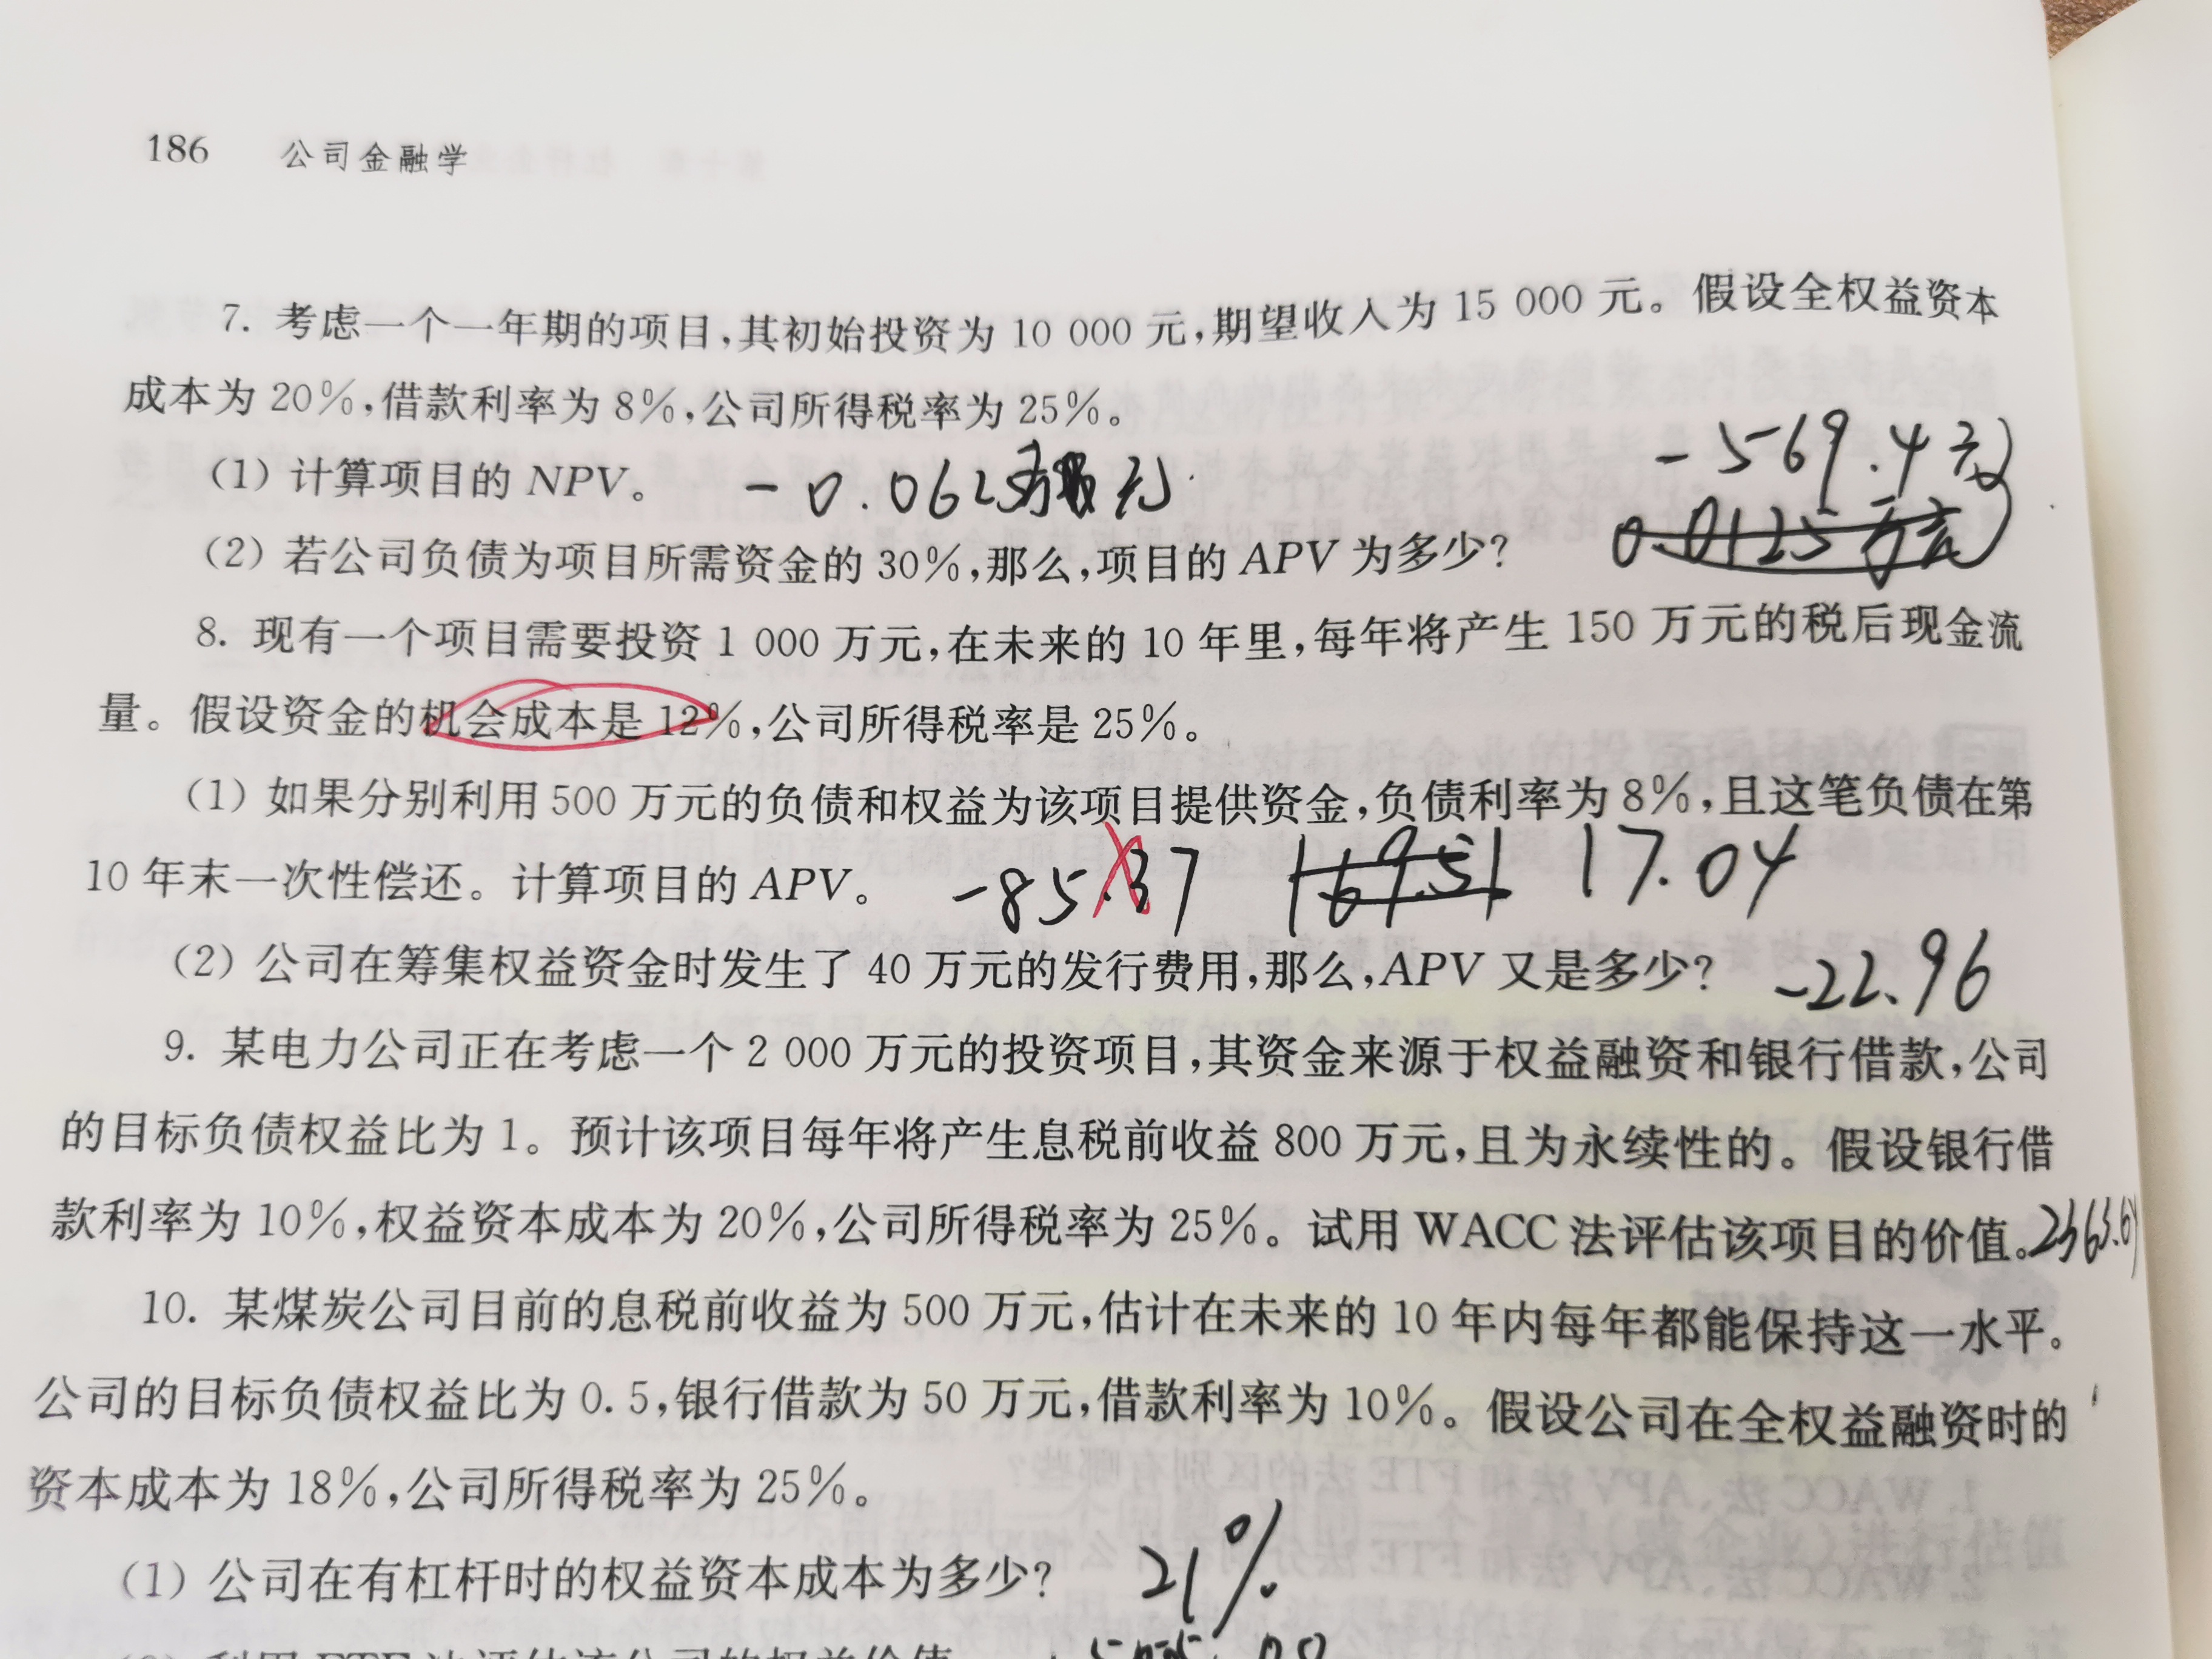 186 公司金融学
7. 考虑一个一年期的项目,其初始投资为 10 000 元,期望收入为 15 000 元。假设全权益资本
成本为 20%,借款利率为 8%,公司所得税率为 25%。
-569.4元
(1) 计算项目的 NPV。 -0.0625
(2) 若公司负债为项目所需资金的 30%,那么,项目的 APV 为多少? 0.0125万元
8. 现有一个项目需要投资 1 000 万元,在未来的 10 年里,每年将产生 150 万元的税后现金流
量。假设资金的机会成本是 12%,公司所得税率是 25%。
(1) 如果分别利用 500 万元的负债和权益为该项目提供资金,负债利率为 8%,且这笔负债在第
10 年末一次性偿还。计算项目的 APV。 -85.37 169.51 17.04
(2) 公司在筹集权益资金时发生了 40 万元的发行费用,那么,APV 又是多少? -22.96
9. 某电力公司正在考虑一个 2 000 万元的投资项目,其资金来源于权益融资和银行借款,公司
的目标负债权益比为 1。预计该项目每年将产生息税前收益 800 万元,且为永续性的。假设银行借
款利率为 10%,权益资本成本为 20%,公司所得税率为 25%。试用 WACC 法评估该项目的价值。
10. 某煤炭公司目前的息税前收益为 500 万元,估计在未来的 10 年内每年都能保持这一水平。
公司的目标负债权益比为 0.5,银行借款为 50 万元,借款利率为 10%。假设公司在全权益融资时的
资本成本为 18%,公司所得税率为 25%。
(1) 公司在有杠杆时的权益资本成本为多少? 21%